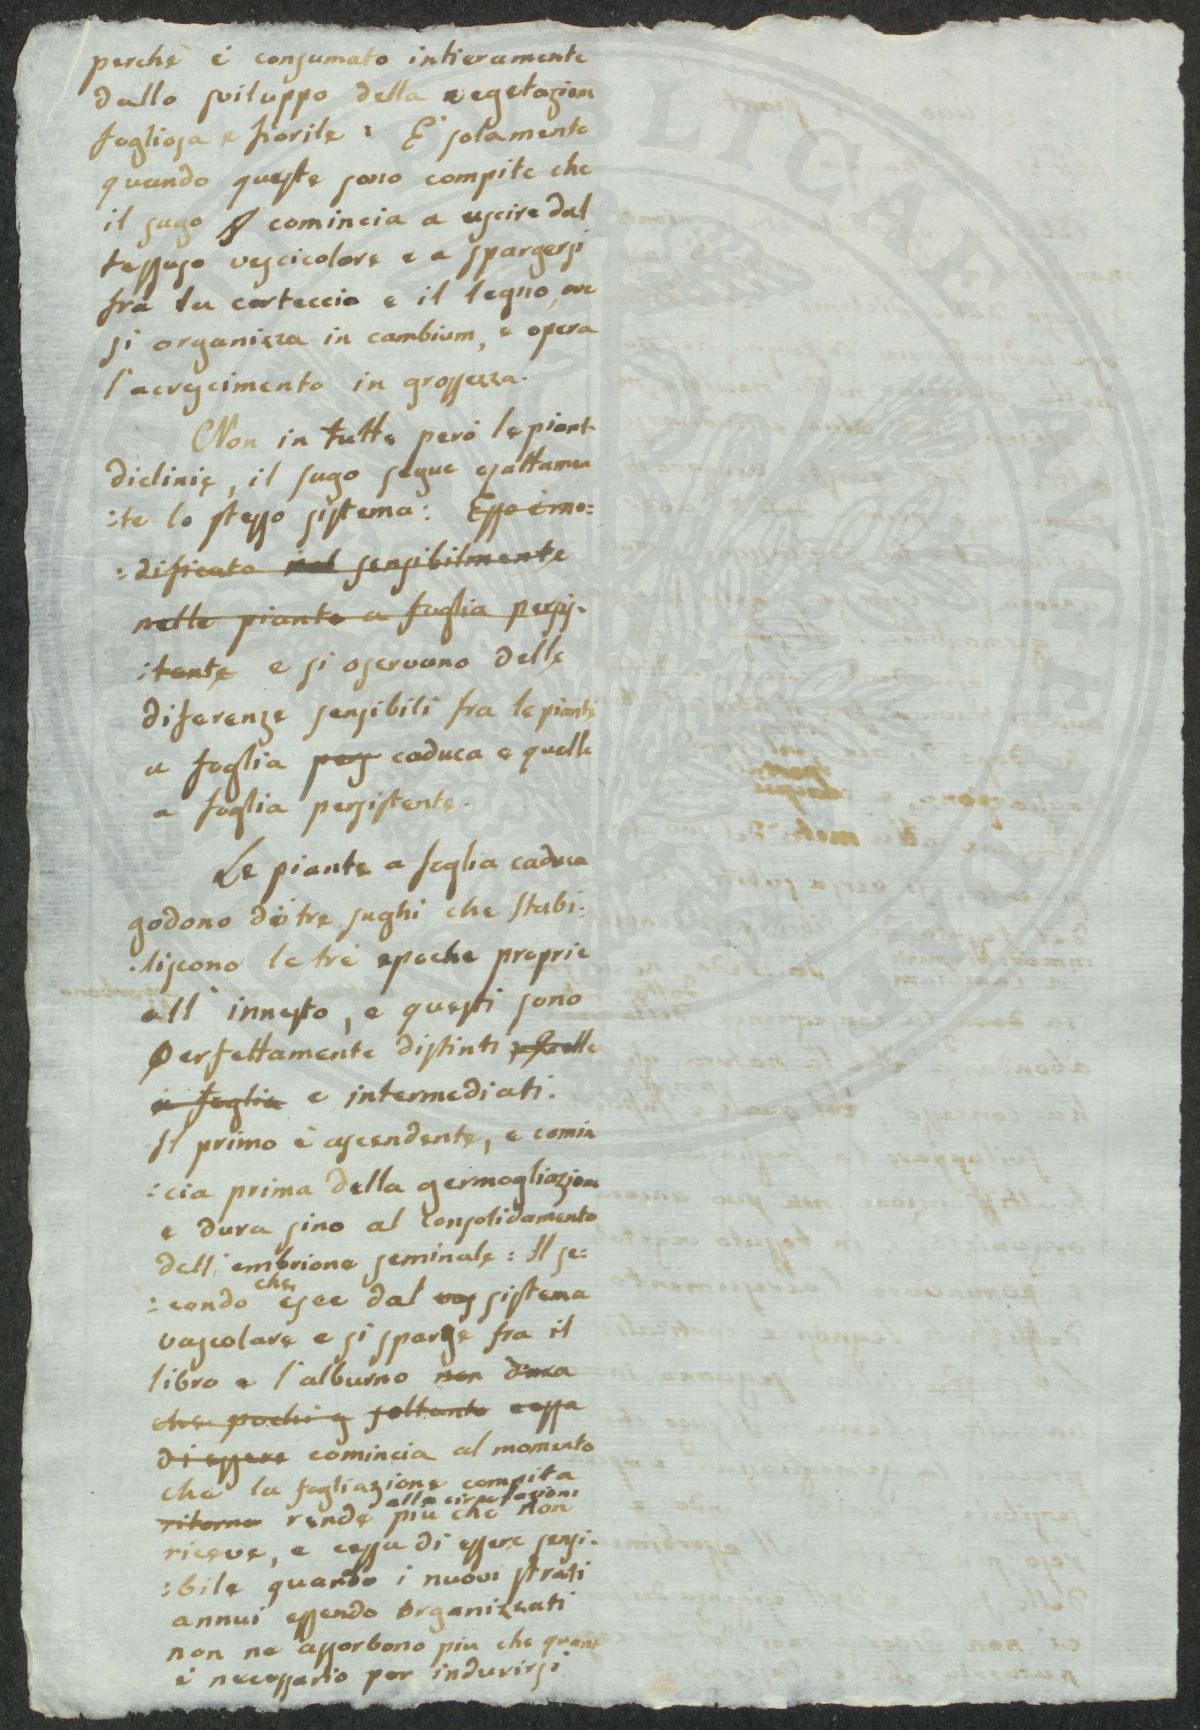 perchè è consumato intieramente
dallo sviluppo della vegetazion
fogliosa e fiorile: E' solamente
quando queste sono compite che
il sugo comincia a uscire dal
tessuso vescicolore e a spargersi
fra la corteccia e il legno, ove
si organizza in cambium, e opera
l'acrescimento in grossezza.
Non in tutte però le piant
diclinie, il sugo segue esattamen
:te lo stesso sistema: Esso è mo:
:dificato sensibilmente
nelle piante a foglia persis-
:tente e si oservano delle
diferenze sensibili fra le piante
a foglia per caduca e quelle
a foglia persistente.
Le piante a foglia caduca
godono di tre sughi che stabi:
:liscono le tre epoche proprie
all' innesto, e questi sono
perfettamente distinti e quelle
a foglia e intermediati.
Il primo è ascendente, e comin
:cia prima della germogliazione
e dura sino al consolidamento
dell' embrione seminale: Il se:
:condo che esce dal vas sistema
vascolare e si sparge fra il
libro e l'alburno non dura
che pochi g soltanto cessa
di essere comincia al momento
che la fogliazione compita
ritorna rende alla circolazioni più che non
riceve, e cessa di essere sensi:
:bile quando i nuovi strati
annui essendo organizzati
non ne assorbono più che quant
è necessario per indurirsi